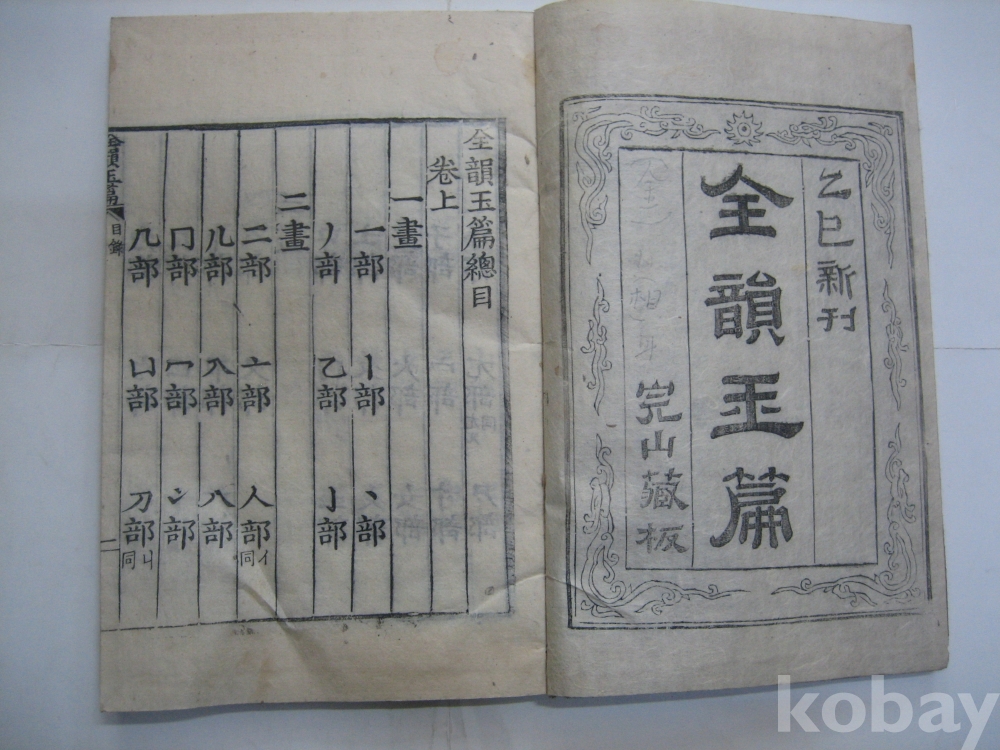 乙巳新刊
全韻玉篇
完山藏板
全韻玉篇總目
卷上
一畫
一部 丨部 丶部
丿部 乙部 亅部
二畫
二部 亠部 人部 亻同
儿部 入部 八部
冂部 冖部 冫部
几部 凵部 刀部 刂同
全韻玉篇 目錄 一
kobay